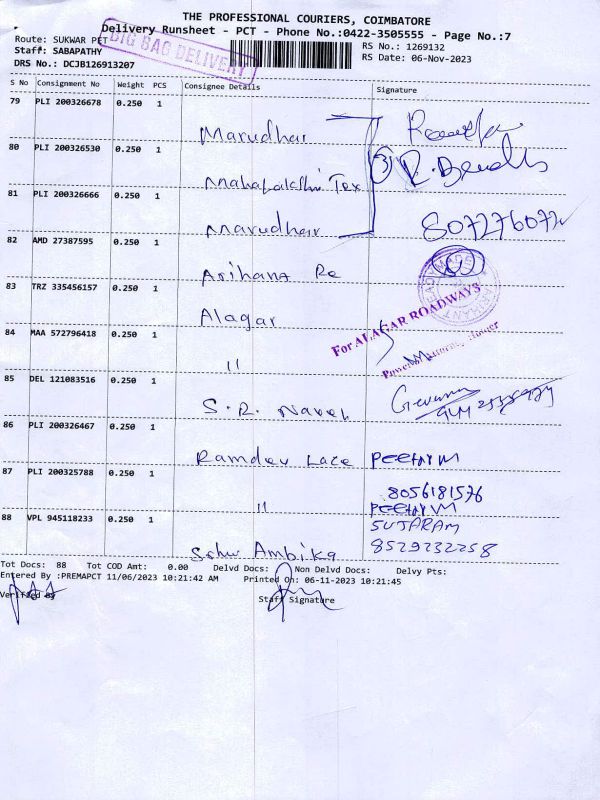 THE PROFESSIONAL COURIERS, COIMBATORE
Delivery Runsheet - PCT - Phone No.:0422-3505555 - Page No.:7
Route: SUKWAR PET
BIG BAG DELIVERY
RS No.: 1269132
Staff: SABAPATHY
RS Date: 06-Nov-2023
DRS No.: DCJB126913207
S No Consignment No Weight PCS Consignee Details Signature
79 PLI 200326678 0.250 1 Marudhar
80 PLI 200326530 0.250 1 Mahalakshmi Tex (3)
81 PLI 200326666 0.250 1 Marudhar
82 AMD 27387595 0.250 1 Arihana Re
83 TRZ 335456157 0.250 1 Alagar
For ALAGAR ROADWAYS
84 MAA 572796418 0.250 1 "
85 DEL 121083516 0.250 1 S.R. Navek
86 PLI 200326467 0.250 1 Ramdev Lace
87 PLI 200325788 0.250 1 "
8056181576
88 VPL 945118233 0.250 1 Ambika
8529232258
Tot Docs: 88 Tot COD Amt: 0.00 Delvd Docs: Non Delvd Docs: Delvy Pts:
Entered By :PREMAPCT 11/06/2023 10:21:42 AM Printed On: 06-11-2023 10:21:45
Verified By
Staff Signature